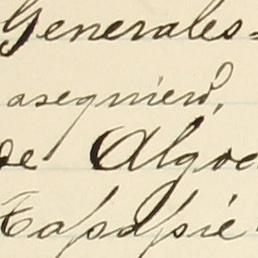 Generales=
asegnierd,
de Algod
Tapapié